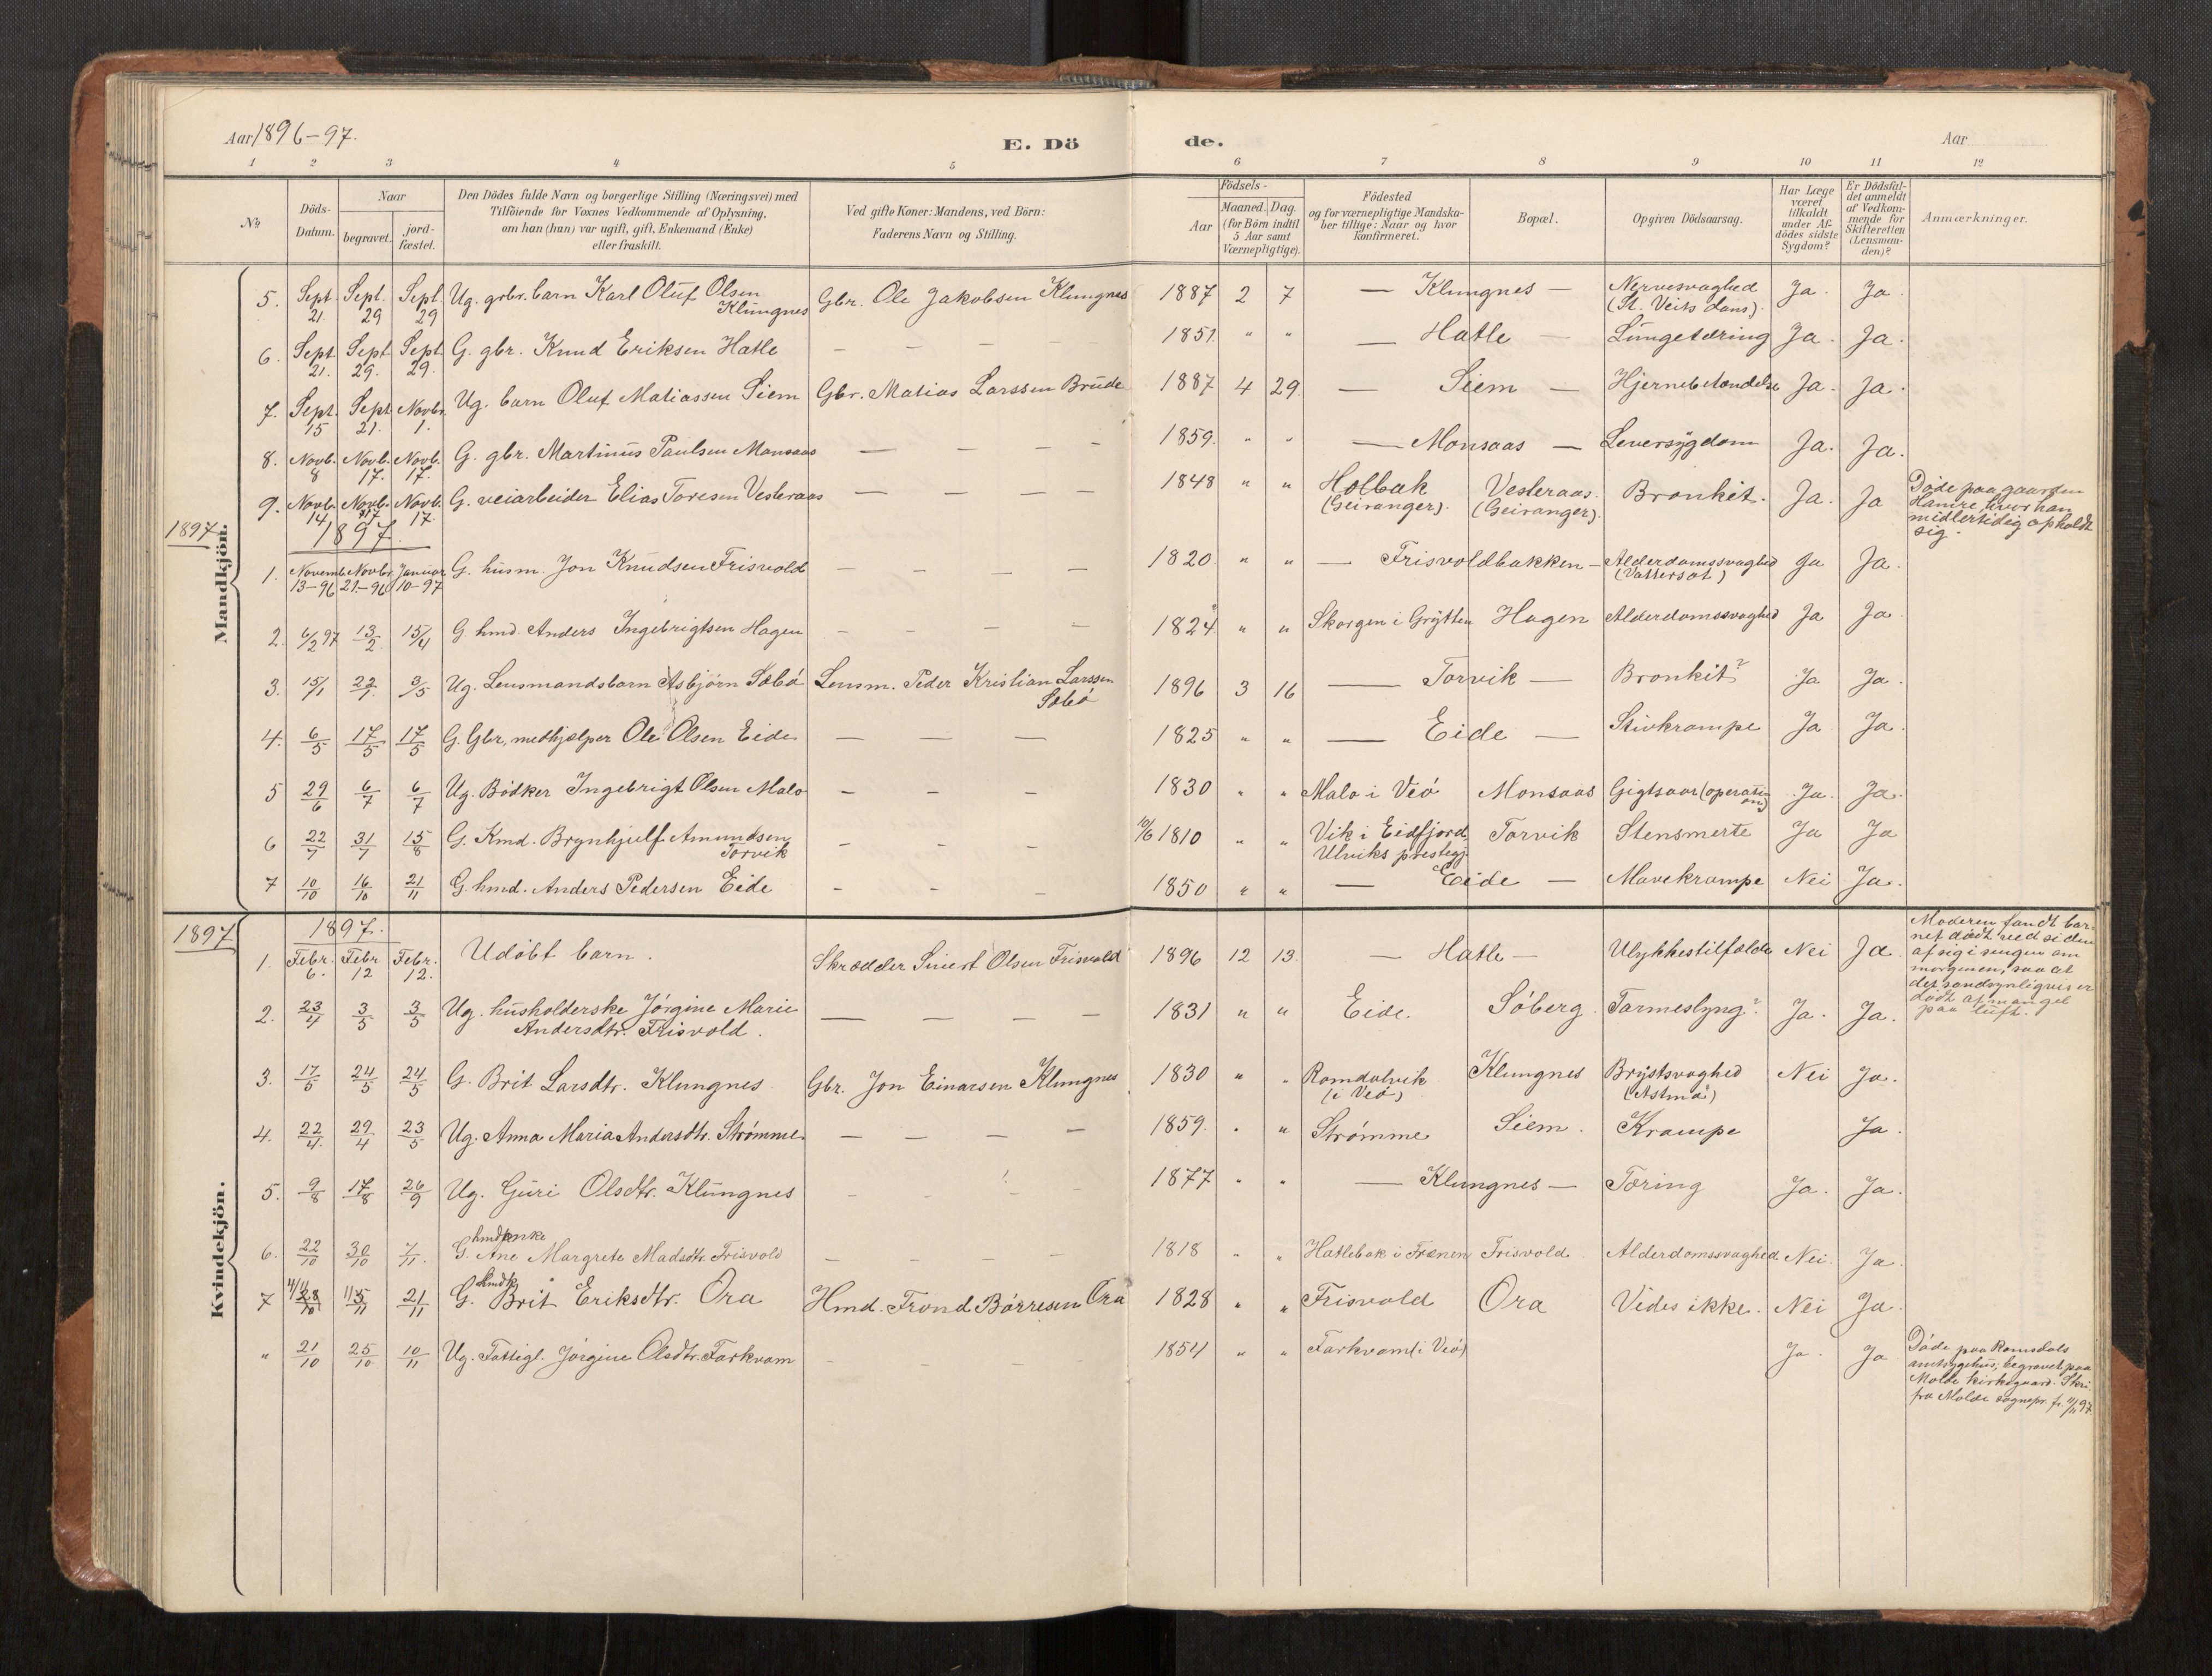 Aar 1896-97.
E. Dö de.
Aar
1 2 3 4 5 6 7 8 9 10 11 12
No
Döds-Datum.
Naar
begravet.
jord-fæstet.
Den Dödes fulde Navn og borgerlige Stilling (Næringsvei) med
Tilföiende for Voxnes Vedkommende af Oplysning,
om han (hun) var ugift, gift, Enkemand (Enke)
eller fraskilt.
Ved gifte Koner: Mandens, ved Börn:
Faderens Navn og Stilling.
Födsels-
Aar
Maaned. Dag.
(for Börn indtil
5 Aar samt
Værnepligtige).
Födested
og for værnepligtige Mandska-
ber tillige: Naar og hvor
konfirmeret.
Bopæl.
Opgiven Dödsaarsag.
Har Læge
været
tilkaldt
under Af-
dödes sidste
Sygdom?
Er Dödsfal-
det anmeldt
af Vedkom-
mende for
Skifteretten
(Lensman-
den)?
Anmærkninger.
Mandkjön.
5. Sept. 21. Sept. 29 Sept. 29 Ug. grbr. barn Karl Oluf Olsen Klungnes Gbr. Ole Jakobsen Klungnes 1887 2 7 — Klungnes — Nervesvaghed (St. Veits dans). Ja. Ja.
6. Sept. 21. Sept. 29. Sept. 29. G. gbr. Knud Eriksen Hatle — — — — 1851. " " — Hatle — Lungetæring Ja. Ja.
7. Sept. 15 Sept. 21. Novbr. 1. Ug. barn Oluf Matiassen Siem Gbr. Matias Larssen Brude 1887 4 29 — Siem — Hjernebetændelse Ja. Ja.
8. Novb. 8 Novb. 17. Novb. 17. G. gbr. Martinus Paulsen Monsaas — — — — 1859. " " — Monsaas — Leversygdom Ja. Ja.
9. Novb. 14 Novb. 17 Novb. 17. G. veiarbeider Elias Toresen Vesteraas — — — — 1848 " " Holbak (Geiranger). Vesteraas. (Geiranger). Bronkit. Ja. Ja Døde paa gaarden
Hamre hvor han
midlertidig opholdt
sig.
1897
1897.
1. Novemb. 13-96 Novbr. 21.-96 Januar 10-97 G. husm. Jon Knudsen Frisvold — — — — 1820. " " — Frisvoldbakken — Alderdomssvaghed (Vattersot) Ja Ja.
2. 6/2 97 13/2 15/4 G hmd. Anders Ingebrigtsen Hagen — — — — 1824. " " Skorgen i Grytten Hagen Alderdomssvaghed Ja Ja
3. 15/1 22/1. 3/5 Ug. Lensmandsbarn Asbjørn Sæbø Lensm. Peder Kristian Larssen Sæbø 1896 3 16 — Torvik — Bronkit? Ja Ja.
4. 6/5 17/5 17/5 G. Gbr, medhjælper Ole Olsen Eide — — — 1825 " " — Eide — Stivkrampe Ja Ja.
5 29/6 6/7 6/7 Ug. Bødker Ingebrigt Olsen Malo — — — 1830 " " Malo i Veø Monsaas Gigtsaar (operation) Ja. Ja.
6 22/7 31/7 15/8 G. Kmd. Brynhjulf Amundsen Torvik — — — 10/6 1810 " " Vik i Eidfjord Ulviks prestegj. Torvik Stensmerte Ja Ja
7 10/10 16/10 21/11 G. hmd. Anders Pedersen Eide — — — 1850 " " — Eide — Mavekrampe Nei Ja.
1897
Kvindekjön.
1897.
1. Febr. 6. Febr 12 Febr. 12. Udøbt barn. Skrædder Sivert Olsen Frisvold 1896 12 13 — Hatle — Ulykkestilfælde Nei Ja. Moderen fandt bar-
net dødt ved siden
af sig i sengen om
morgenen, saa at
det sandsynligvis er
dødt af mangel
paa luft.
2. 23/4 3/5 3/5 Ug. husholderske Jørgine Marie Andersdtr. Frisvold. — — — — 1831 " " Eide. Søberg Tarmeslyng? Ja. Ja.
3. 17/5 24/5 24/5 G. Brit Larsdtr. Klungnes Gbr. Jon Einarsen Klungnes 1830 " " Romdalvik (i Veø) Klungnes Brystsvaghed (Astma) Nei Ja.
4. 22/4. 29/4 23/5 Ug. Anna Maria Andersdtr. Strømme. — — — — 1859. " " Strømme Siem. Krampe Ja.
5. 9/8 17/8 26/9 Ug. Guri Olsdtr. Klungnes — — 1877 " " — Klungnes — Tæring Ja. Ja.
6. 22/10 30/10 7/11. G. hmdenke Ane Margrete Madsdtr. Frisvold — — — 1818 " " Hatlebak i Frænen Frisvold Alderdomssvaghed Nei. Ja.
7 G. hmdk. Brit Eriksdtr. Ora Hmd. Trond Børresen Ora 1828 " " Frisvold Ora Vides ikke. Nei Ja.
" 21/10 25/10 10/11 Ug. Fattigl. Jørgine Olsdtr. Farkvam — — — 1854 " " Farkvam (i Veø) Ja. Ja Døde paa Romsdals
amtsygehus, begravet paa
Molde kirkegaard. Skri.
fra Molde sognepr. fr. 11/11 97.